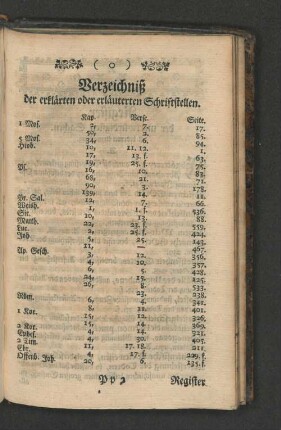 ( o )
Verzeichniß
der erklärten oder erläuterten Schriftstellen.
Kap. Verse. Seite.
1 Mos. 7, 7. 17.
50, 2. 85.
5 Mos. 34, 6. 94.
Hiob. 10, 11. 12. 1.
17, 13. f. 63.
19, 25. f. 75.
Ps. 16, 10. 83.
68, 21. 71.
90, 3. 178.
139, 14. 11.
Pr. Sal. 12, 7.
Weish. 1, 1. f. 536.
Sir. 10, 13. 88.
Matth. 22, 23. f. 559.
Luc. 2, 25. f. 424.
Joh. 5, 25. 143.
11, 467.
Ap. Gesch. 3, 12. 367.
4, 10. 428.
24, 15. 125.
26, 8. 533.
23. 238.
Röm. 6, 4. 341.
8, 11. 401.
1 Kor. 15, 326.
15, 14. 369.
2 Kor. 4, 14. 321.
Ephes. 4, 30. 405.
2 Tim. 17. 18. 211.
Ebr. 11, 17. f. 229. f.
Offenb. Joh. 20, 6. 135. f.
P p 2 Register